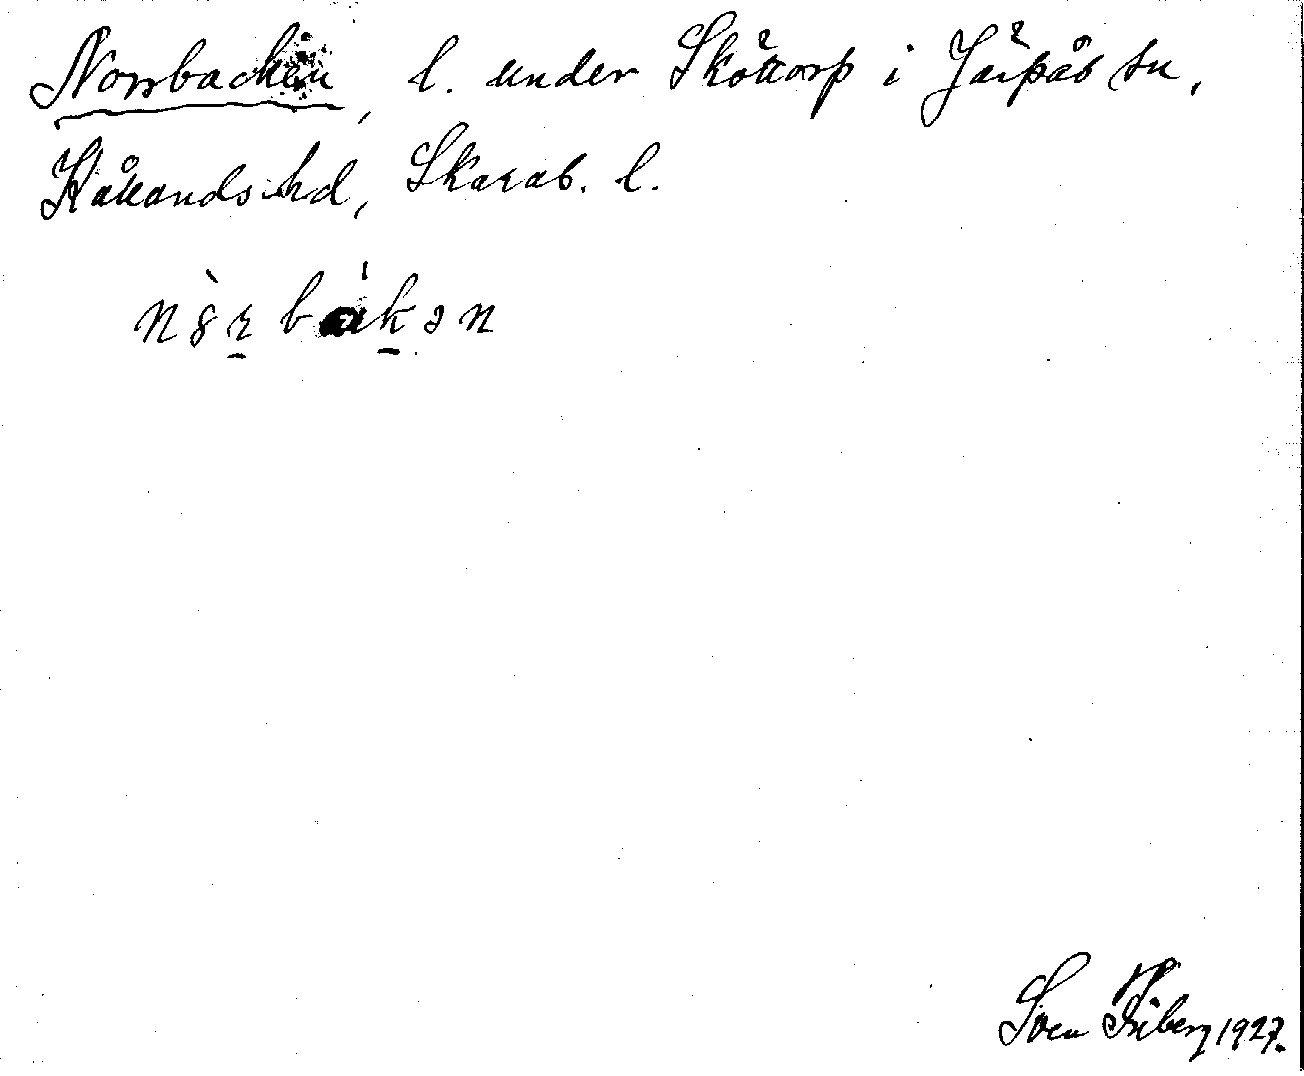 Norrbacken, l. under Sköttorp i Järpås sn,
Kållands hd, Skarab. l.
n8̀ɽbákən
Sven Friberg 1927.